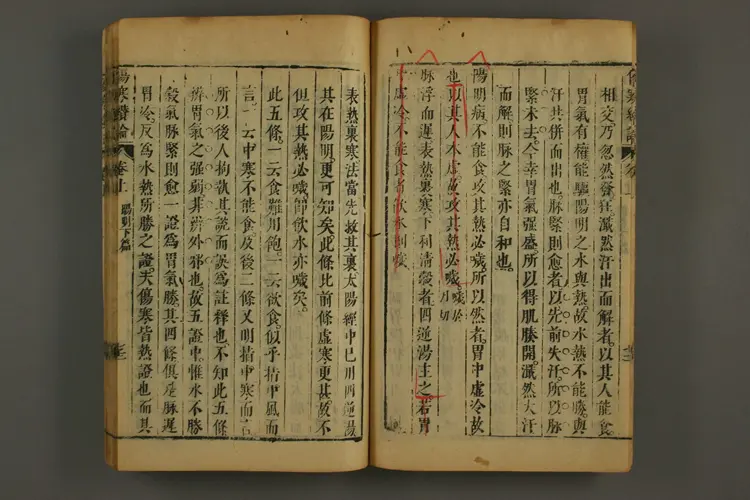 相交乃忽然發狂濈然汗出而解者以其人能食
胃氣有權能驅陽明之水與熱故水熱不能勝與
汗共併而出也脉緊則愈者以先前失汗所以脉
緊未去今幸胃氣強盛所以得肌腠開濈然大汗
而解則脉之緊亦自和也
陽明病不能食攻其熱必噦所以然者胃中虛冷故
也以其人本虛故攻其熱必噦
脉浮而遲表熱裏寒下利清穀者四逆湯主之若胃
中虛冷不能食者飲水則噦
表熱裏寒法當先救其裏太陽經中已用四逆湯
其在陽明更可知矣此條比前條虛寒更甚故不
但攻其熱必噦卽飲水亦噦矣
此五條一云食難用飽一云欲食似乎指中風而
言一云中寒不能食及後二條又明指中寒而言
所以後人拘執其說而誤爲註釋也不知此五條
辨胃氣之强弱非辨外邪也故五證中惟水不勝
穀氣脉緊則愈一證爲胃氣勝其四條俱是脉遲
胃冷反爲水熱所勝之證夫傷寒皆熱證也而其
傷寒纘論 卷上 陽明下篇